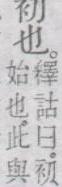 初也。
釋詁曰。初
始也。此與